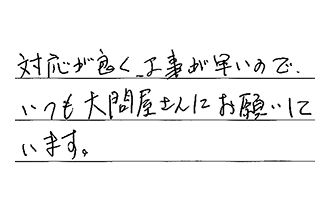 対応が良く、工事が早いので、
いつも大問屋さんにお願いして
います。